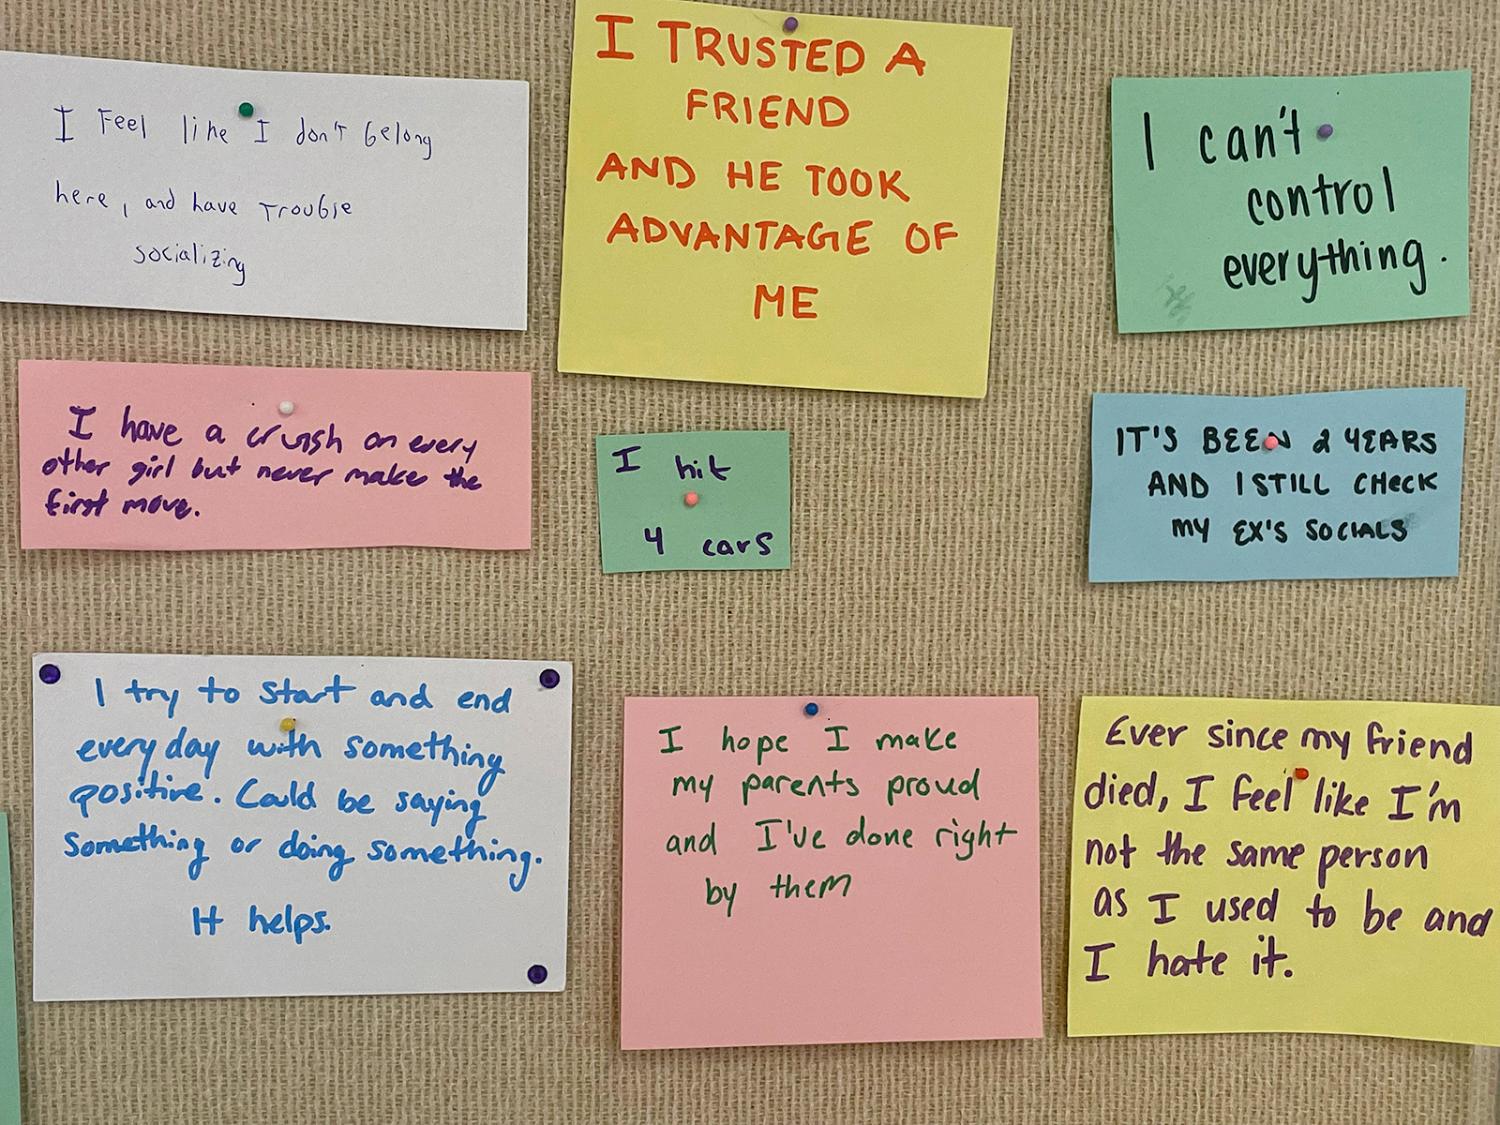 I Feel like I don't belong
here, and have Trouble
socializing
I TRUSTED A
FRIEND
AND HE TOOK
ADVANTAGE OF
ME
I can't
control
everything.
I have a crush on every
other girl but never make the
first move.
I hit
4 cars
IT'S BEEN 2 YEARS
AND I STILL CHECK
MY EX'S SOCIALS
I try to start and end
everyday with something
positive. Could be saying
something or doing something.
It helps.
I hope I make
my parents proud
and I've done right
by them
Ever since my friend
died, I feel like I'm
not the same person
as I used to be and
I hate it.